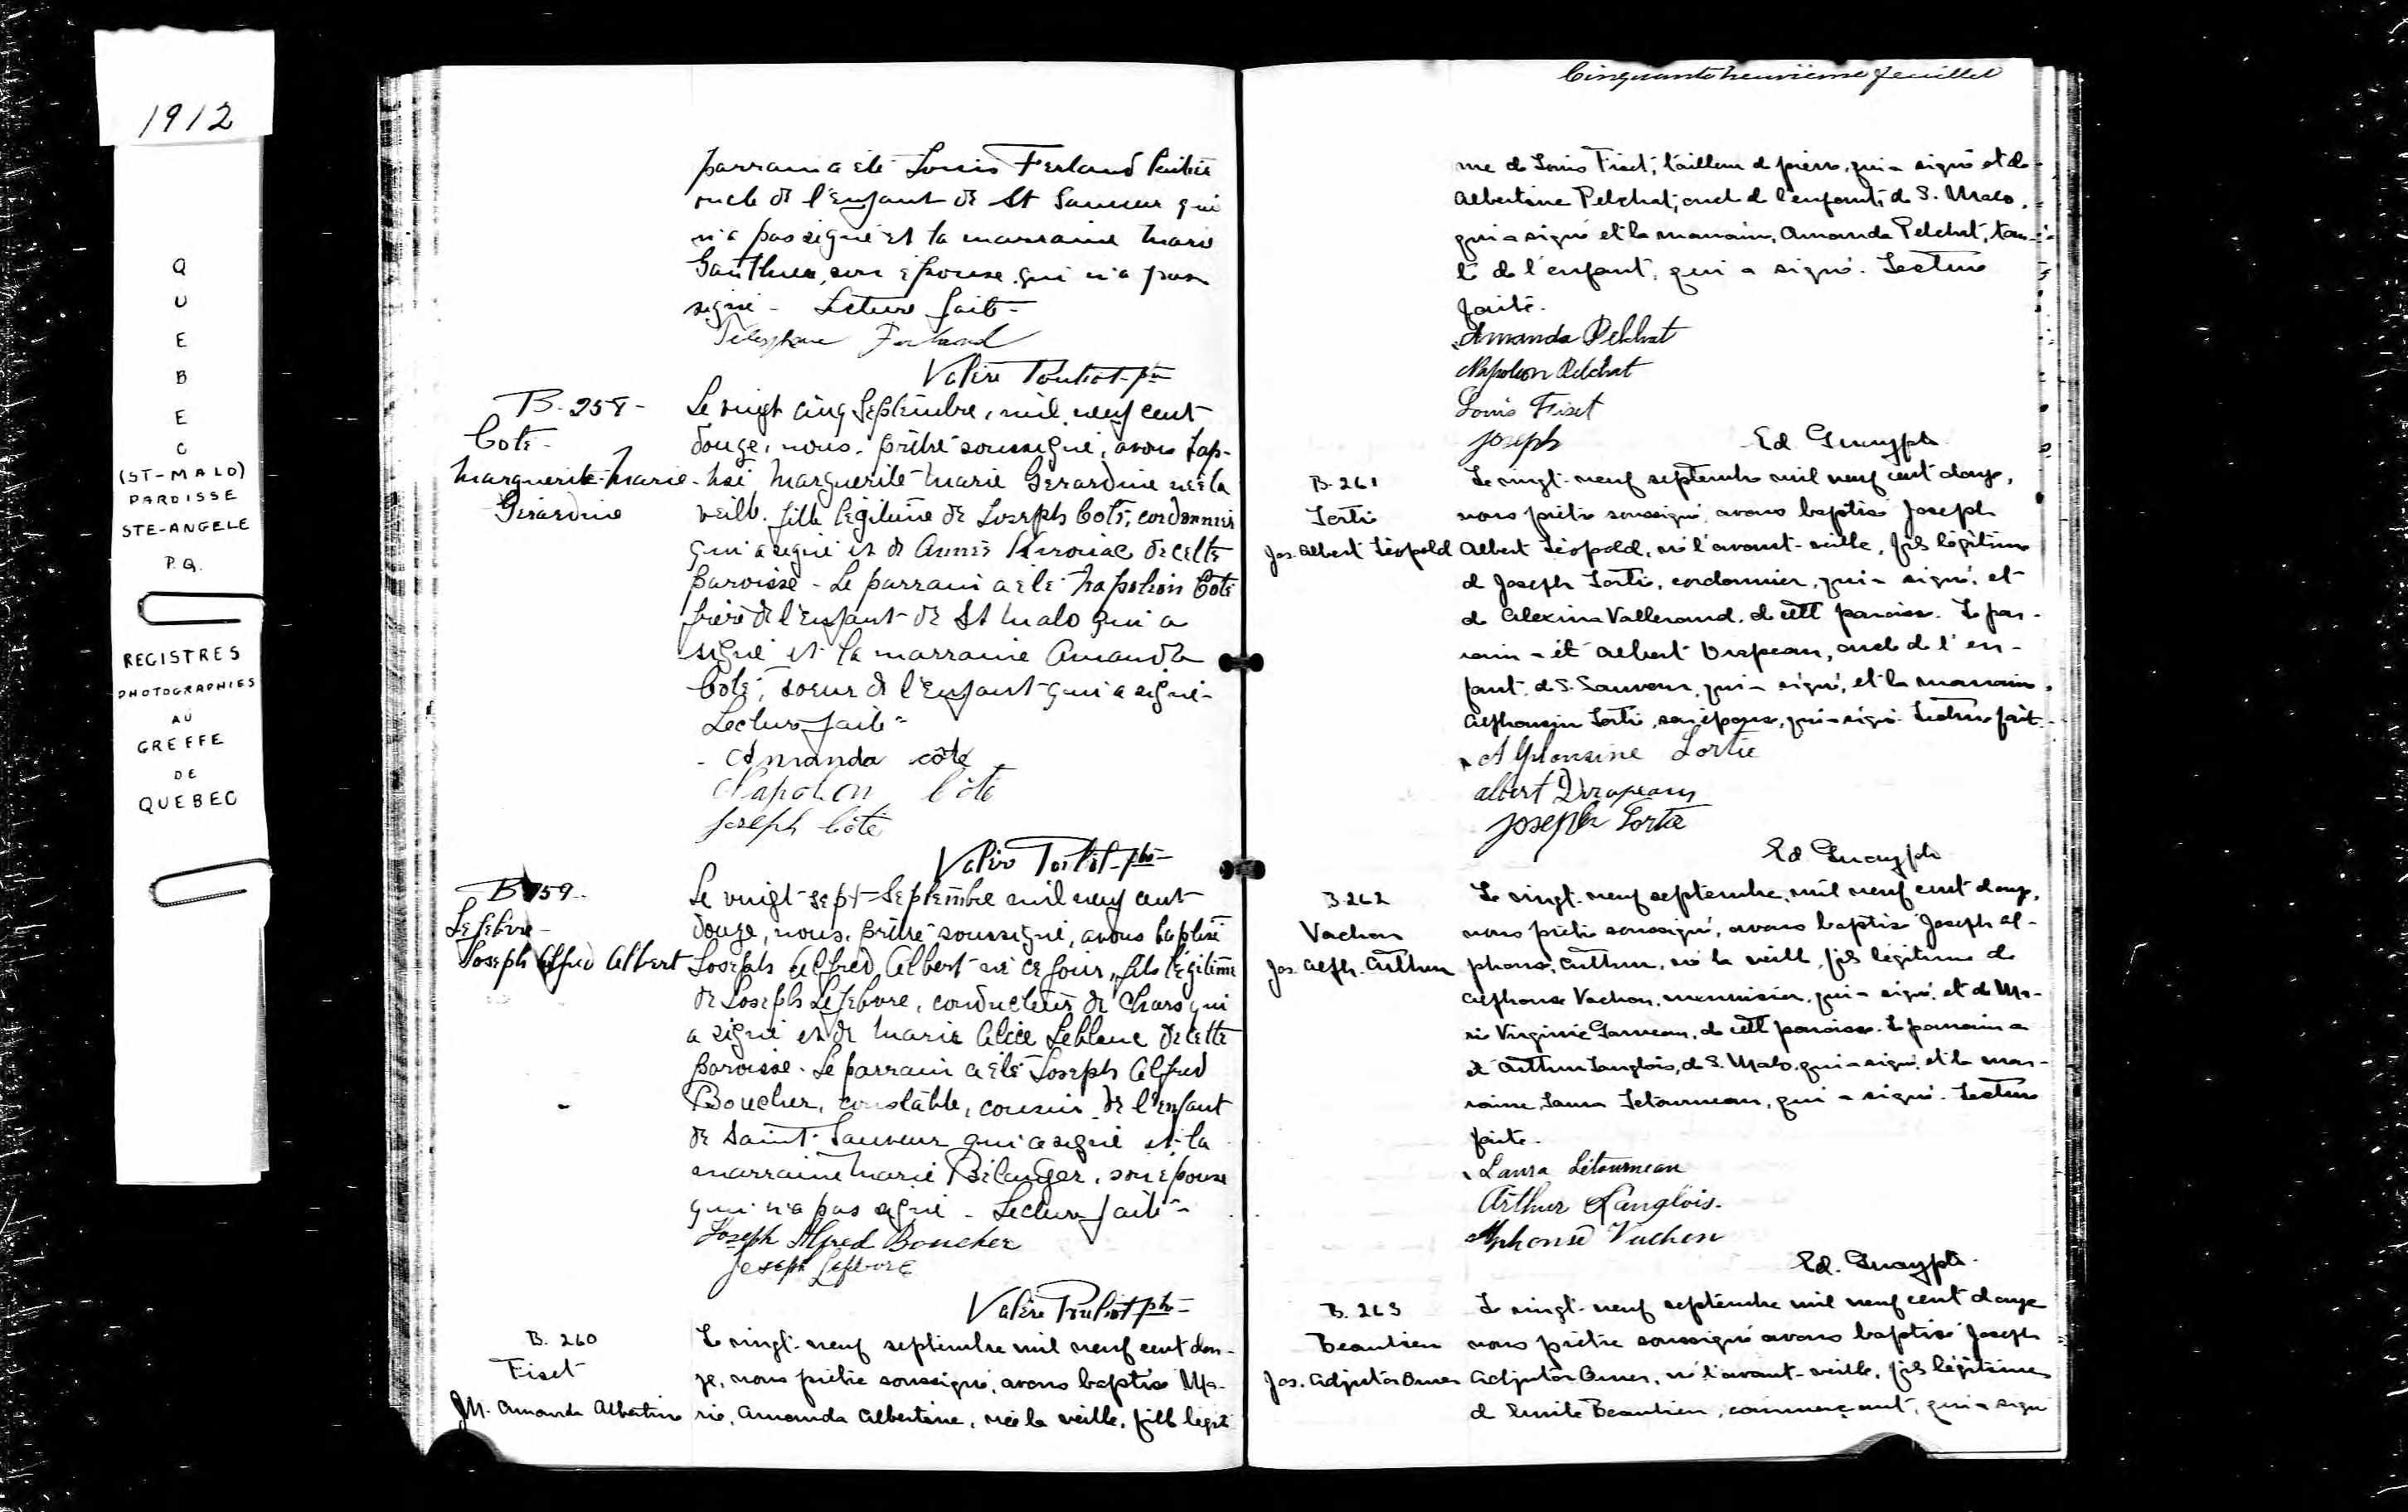 1912
Q
U
E
B
E
C
(ST-MALO)
PAROISSE
STE-ANGELE
P.Q.
REGISTRES
PHOTOGRAPHIES
AU
GREFFE
DE
QUEBEC
parrain a été Louis Ferland
oncle de l'enfant de St Sauveur qui
n'a pas signé et la marraine Marie
Gauthier, son épouse qui n'a pas
signé - Lecture faite -
Télesphore Ferland
Valère Pouliot ptre
B. 258 -
Coté -
Marguerite-Marie
Gérardine
Le vingt cinq Septembre, mil neuf cent
douze, nous, prêtre soussigné, avons bap-
tisé Marguerite Marie Gérardine née la
veille, fille légitime de Joseph Coté, cordonnier
qui a signé et de Kirouac de cette
paroisse - Le parrain a été Napoléon Coté
frère de l'enfant de St Malo qui a
signé et la marraine Amanda
Coté, soeur de l'enfant qui a signé -
Lecture faite -
Amanda côté
Napoleon Côté
Joseph Côté
Valère Pouliot ptre
B 259 -
Lefebvre -
Joseph Alfred Albert
Le vingt-sept Septembre mil neuf cent
douze, nous, prêtre soussigné, avons baptisé
Joseph Alfred Albert né ce jour, fils légitime
de Joseph Lefebvre, conducteur de chars qui
a signé et de Marie Alice Leblanc de cette
paroisse - Le parrain a été Joseph Alfred
Boucher, constable, cousin de l'enfant
de Saint-Sauveur qui a signé et la
marraine Marie Bélanger, son épouse
qui n'a pas signé - Lecture faite -
Joseph Alfred Boucher
Joseph Lefebvre
Valère Pouliot ptre
B. 260
Fiset
M. Amanda Albertine
Le vingt-neuf septembre mil neuf cent dou-
ze, nous prêtre soussigné, avons baptisé Ma-
rie, Amanda Albertine, née la veille, fille légiti
Cinquante neuvième feuillet
me de Louis Fiset, tailleur de pierre, qui a signé et de
Albertine Pelchat, oncle de l'enfant, de S. Malo,
qui a signé et la marraine, Amanda Pelchat, tan-
te de l'enfant, qui a signé. Lecture
faite.
Amanda Pelchat
Napoléon Pelchat
Louis Fiset
Joseph
Ed.
B. 261
Lortie
Jos. Albert Léopold
Le vingt-neuf septembre mil neuf cent douze,
nous prêtre soussigné, avons baptisé Joseph
Albert Léopold, né l'avant-veille, fils légitime
de Joseph Lortie, cordonnier, qui a signé, et
de Alexina Vallerand, de cette paroisse. Le par-
rain a été Albert Drapeau, oncle de l'en-
fant, de S. Sauveur, qui a signé, et la marraine,
Alphonsine Lortie, son épouse, qui a signé. Lecture faite.
Alphonsine Lortie
albert Drapeau
Joseph Lortie
Ed.
B. 262
Vachon
Jos. Alph. Arthur
Le vingt-neuf septembre, mil neuf cent douze,
nous prêtre soussigné, avons baptisé Joseph Al-
phonse, Arthur, né la veille, fils légitime de
Alphonse Vachon, menuisier, qui a signé, et de Ma-
rie Virginie Garneau, de cette paroisse. Le parrain a
été Arthur Langlois, de S. Malo, qui a signé, et la mar-
raine, Laura Létourneau, qui a signé. Lecture
faite.
Laura Létourneau
Arthur Langlois.
Alphonse Vachon
Ed.
B. 263
Beaulieu
Jos. Adjutor Omer
Le vingt-neuf septembre mil neuf cent douze
nous prêtre soussigné avons baptisé Joseph
Adjutor Omer, né l'avant-veille, fils légitime
de Emile Beaulieu, commerçant, qui a signé